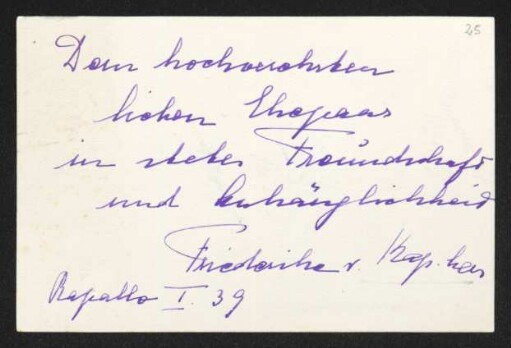 45
Dem hochverehrten
lieben Ehepaar
in steter Freundschaft
und Anhänglichkeit
Friederike v.
Rapallo I. 39